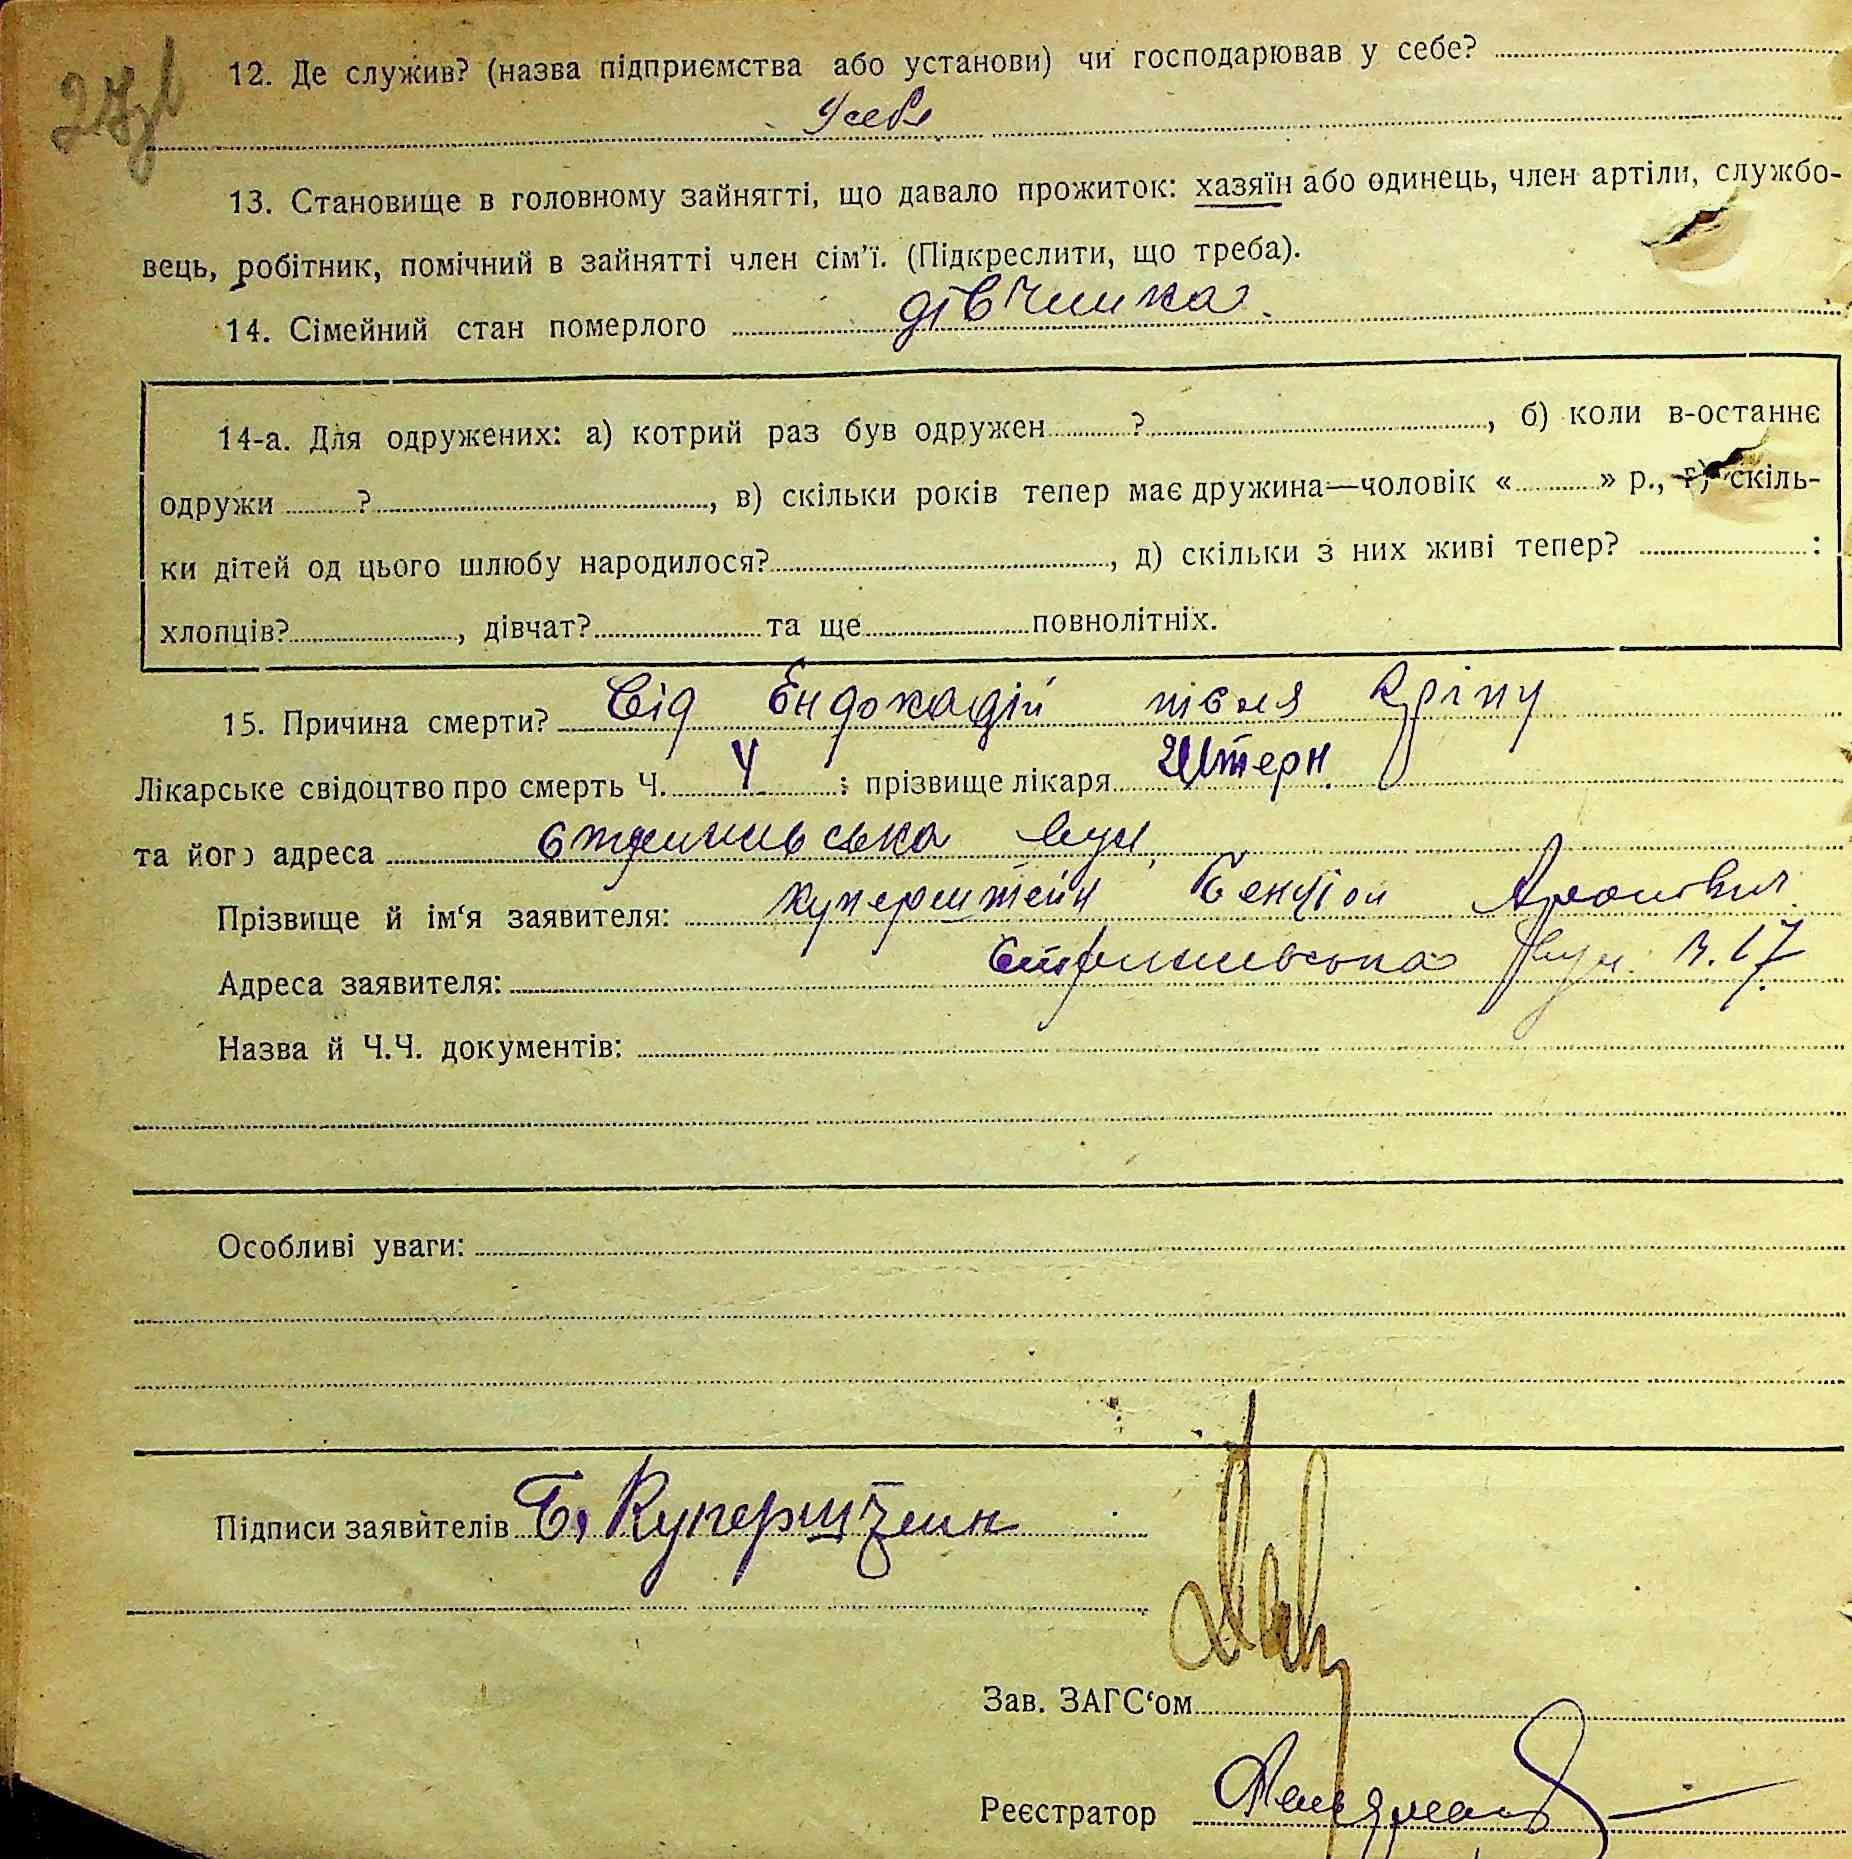 12. Де служив? (назва підприємства або установи) чи господарював у себе?
У себе
13. Становище в головному зайнятті, що давало прожиток: хазяїн або одинець, член артіли, службо-
вець, робітник, помічний в зайнятті член сім'ї. (Підкреслити, що треба).
14. Сімейний стан померлого дівчинка
14-а. Для одружених: а) котрий раз був одружен ? , б) коли в-останнє
одружи ? , в) скільки років тепер має дружина—чоловік « » р., г) скіль-
ки дітей од цього шлюбу народилося? , д) скільки з них живі тепер? :
хлопців? , дівчат? та ще повнолітніх.
15. Причина смерти? Від Ендокадій після Гріпу
Лікарське свідоцтво про смерть Ч. 4 ; прізвище лікаря Штерн
та його адреса вул.
Прізвище й ім‘я заявителя: Куперштейн Бенціон Аронович
Адреса заявителя: вул. 17
Назва й Ч.Ч. документів:
Особливі уваги:
Підписи заявителів Б. Куперштейн
Зав. ЗАГС‘ом
Реєстратор